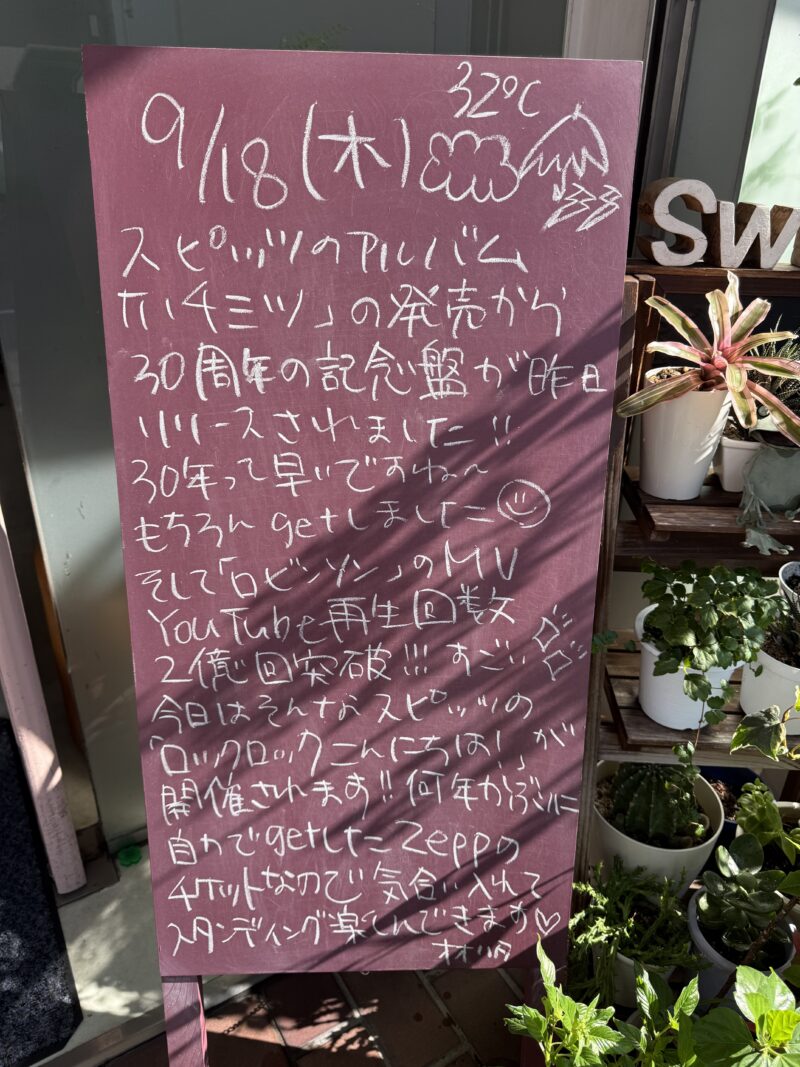 32℃
9/18(木)
スピッツのアルバム
ハチミツ」の発売から
30周年の記念盤が昨日
リリースされました!!
30年って早いですね〜
もちろんgetしました
そして「ロビンソン」のMV
YouTube再生回数
2億回突破!!! すごい
今日はそんなスピッツの
「ロックロックこんにちは!」が
開催されます!! 何年かぶりに
自力でgetした Zeppの
チケットなので気合い入れて
スタンディング楽しんできます♡
SW